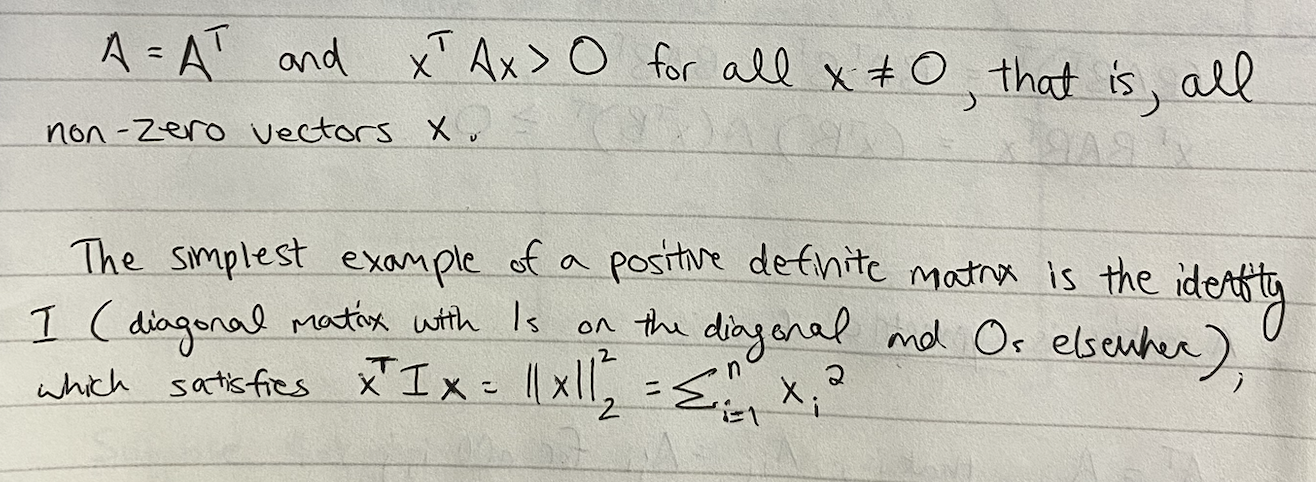 A = Aᵀ and xᵀ Ax > 0 for all x ≠ 0, that is, all
non-zero vectors x.
The simplest example of a positive definite matrix is the identity
I (diagonal matrix with 1s on the diagonal and 0s elsewher),
which satisfies xᵀ I x = ||x||₂² = Σᵢ₌₁ⁿ xᵢ²